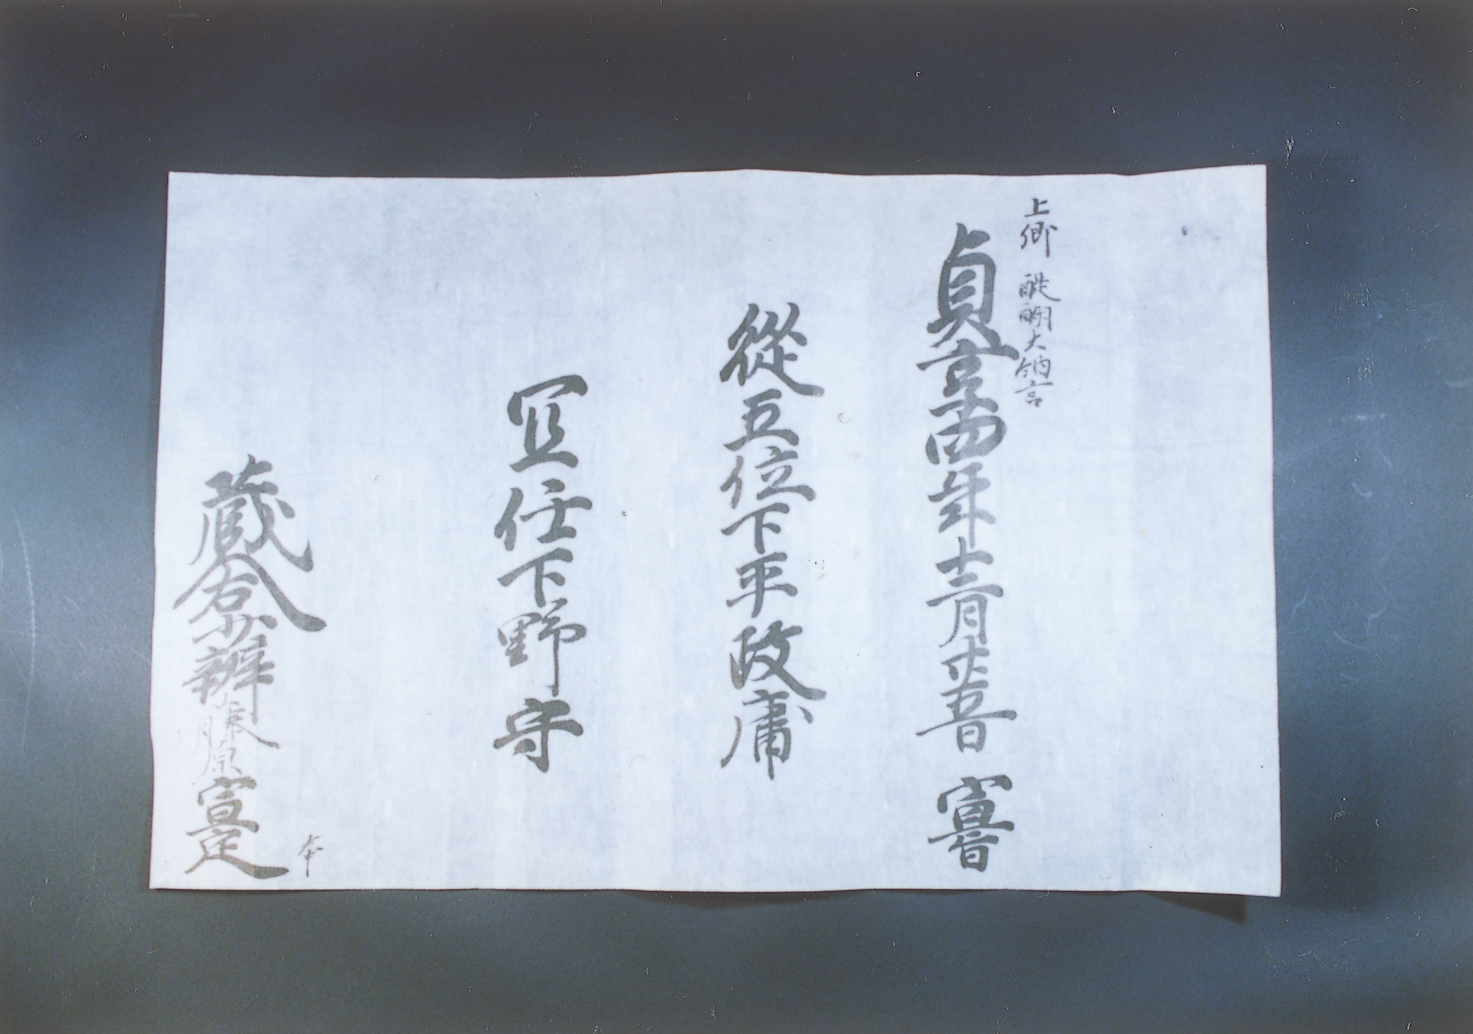 上卿 醍醐大納言
貞享四年十二月廿五日 宣旨
從五位下平政庸
宜任下野守
蔵人右少辨藤原宣定 奉